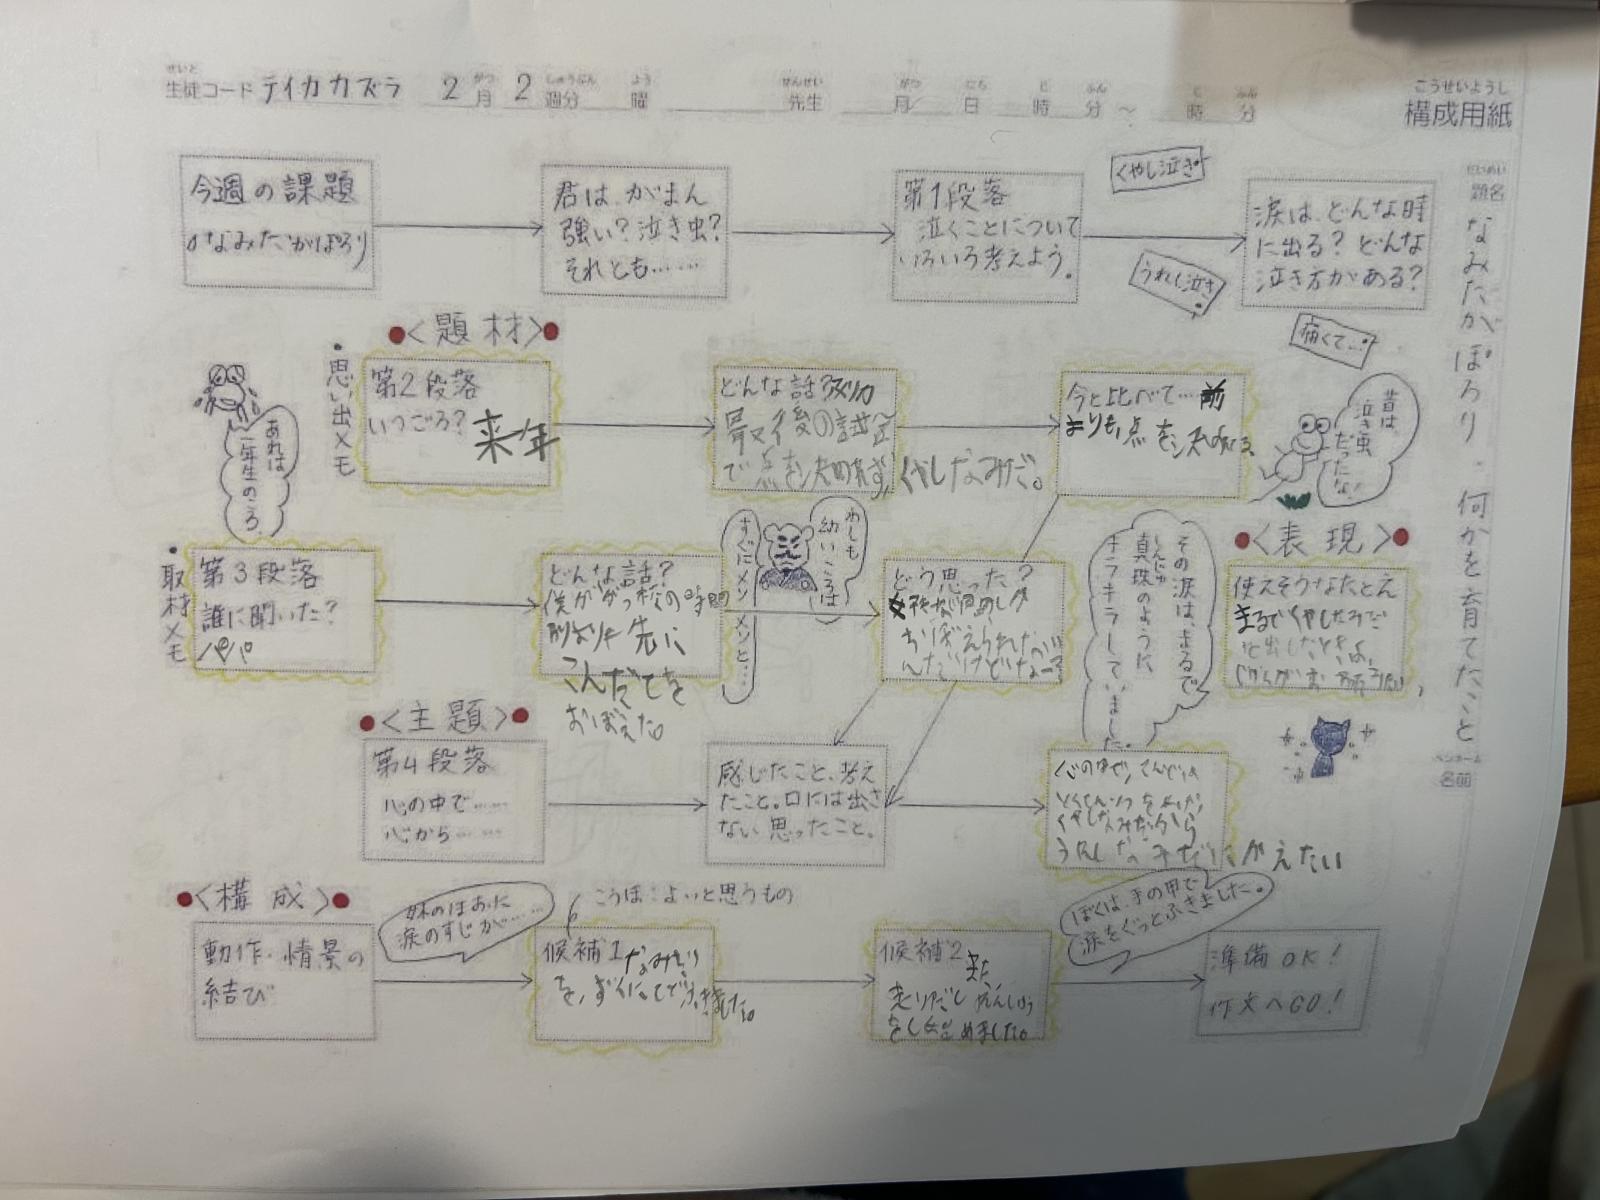 せいと
生徒コード テイカカズラ 2月 2週分 曜 先生 月 日 時 分 ～ 時 分
がつ しゅうぶん よう せんせい がつ にち じ ふん じ ふん
こうせいようし
構成用紙
だいめい
題名
なみだがぽろり・何かを育てたこと
ペンネーム
名前
今週の課題
なみだがぽろり
君は、がまん
強い?泣き虫?
それとも……
第1段落
泣くことについて
いろいろ考えよう。
くやし泣き
うれし泣き
痛くて…
涙は、どんな時
に出る? どんな
泣き方がある?
<題材>
・思い出メモ
第2段落
いつごろ?
来年
どんな話?
最後の試合
で点を決めれず、くやしなみだ。
今と比べて…前
よりも、点を
昔は、
泣き虫
だったな!
あれは
一年生のころ
・取材メモ
第3段落
誰に聞いた?
パパ
どんな話?
僕が
先に
こんだてを
おぼえた。
わしも
幼いころは
すぐにメソメソと…
どう思った?
その涙は、まるで
しんじゅ
真珠のように、
キラキラしていました。
<表現>
使えそうなたとえ
まるで
<主題>
第4段落
心の中で……
心から……
感じたこと、考え
たこと。口には出さ
ない思ったこと。
心の中で、
かえたい
<構成>
動作・情景の
結び
妹のほおに
涙のすじが……
こうほ:よいと思うもの
候補1
候補2
また、
走りだし
を始めました。
ぼくは、手の甲で
涙をぐっとふきました。
準備OK!
作文へGO!